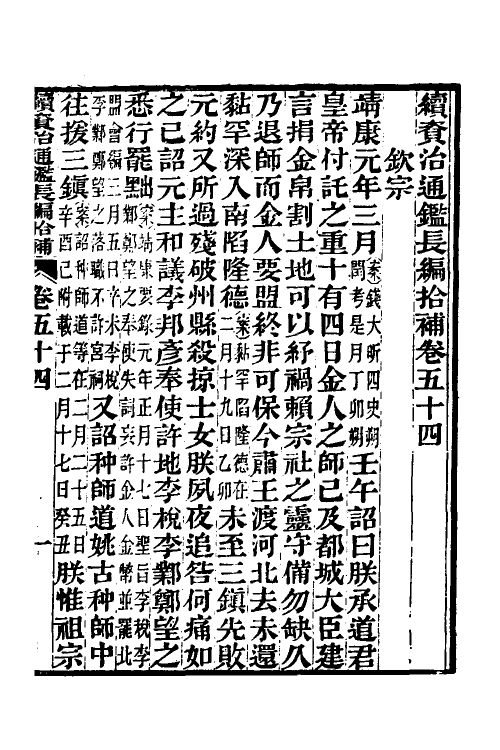 續資治通鑑長編拾補卷五十四
欽宗
靖康元年三月案錢大昕四史朔閏考是月丁卯朔壬午詔曰朕承道君
皇帝付託之重十有四日金人之師已及都城大臣建
言捐金帛割土地可以紓禍賴宗社之靈守備勿缺久
乃退師而金人要盟終非可保今肅王渡河北去未還
黏罕深入南陷隆德案黏罕陷隆德在二月十九日乙卯未至三鎮先敗
元約又所過殘破州縣殺掠士女朕夙夜追咎何痛如
之已詔元主和議李邦彥奉使許地李梲李鄴鄭望之
悉行罷黜案靖康要錄元年正月十七日聖旨李梲李鄴鄭望之奉使失詞妄許金人金幣並罷北盟會編二月五日辛未李梲李鄴鄭望之落職不許宮祠又詔种師道姚古种師中
往援三鎮案詔种師道等在二月二十五日辛酉已附載于二月十七日癸丑朕惟祖宗
續資治通鑑長編拾補
卷五十四
一